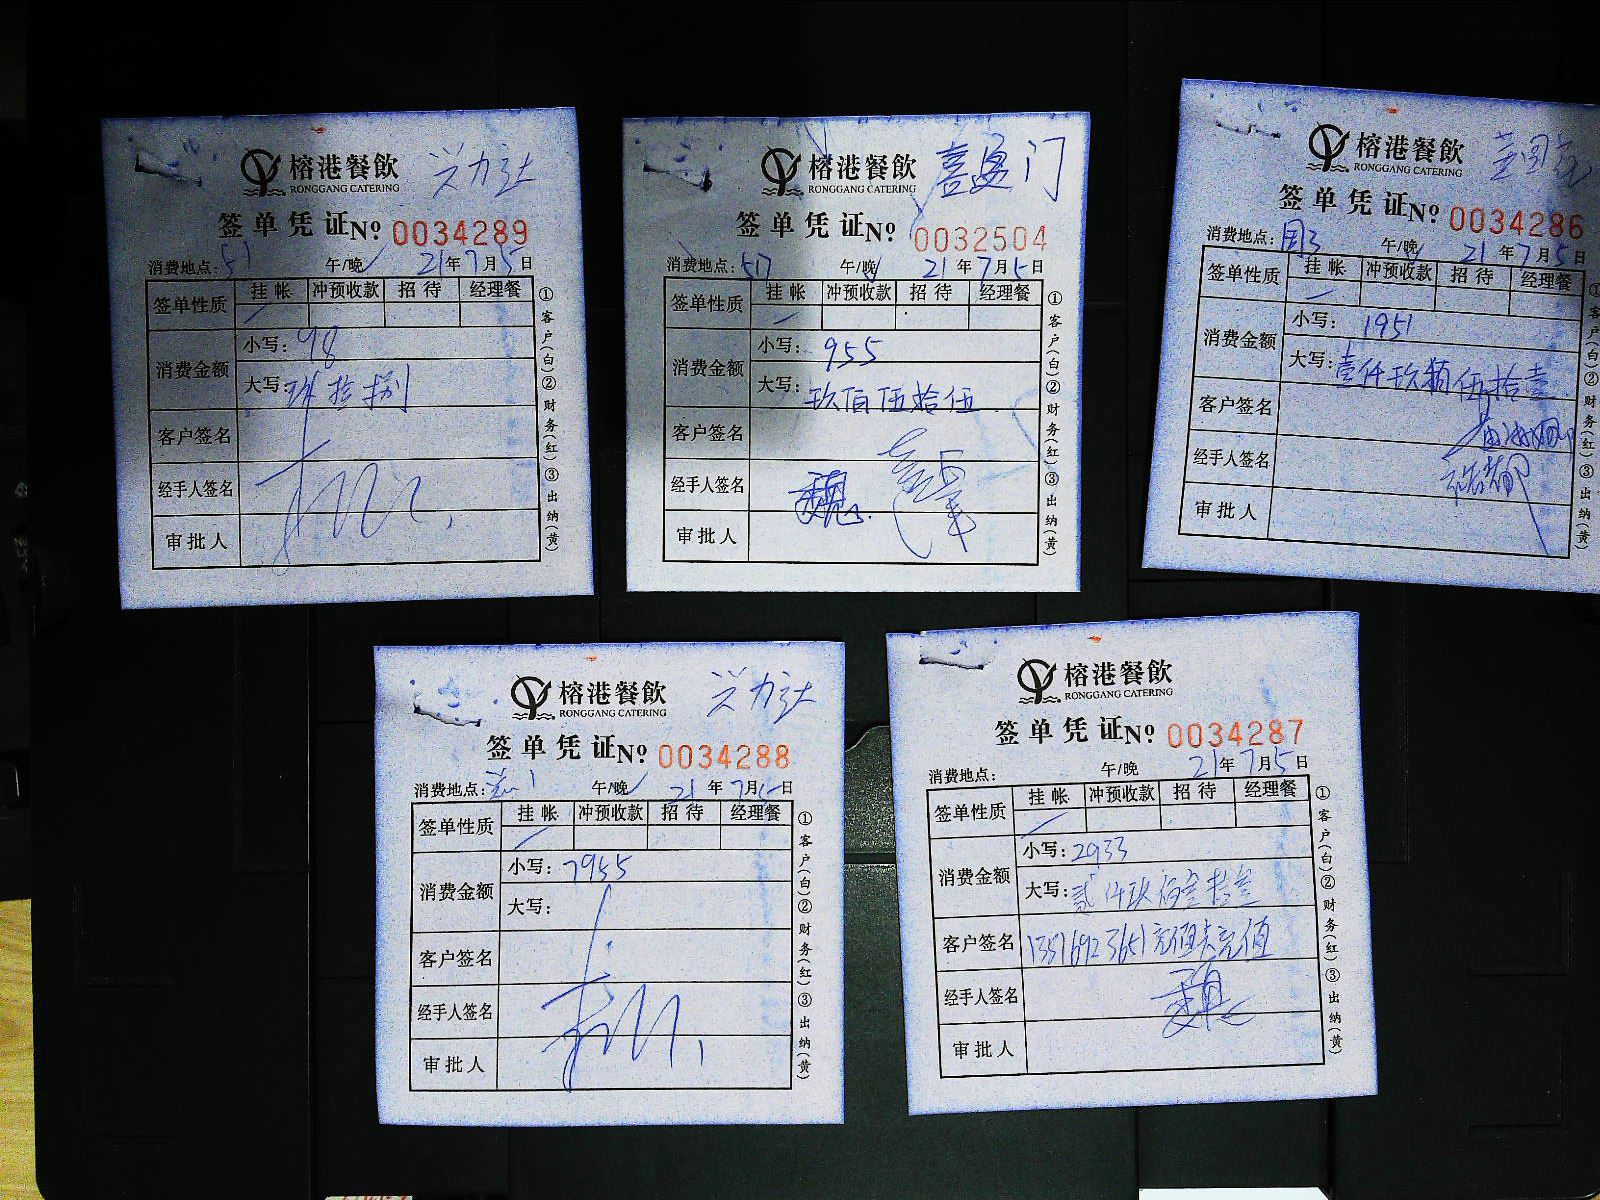 榕港餐飲
兴力达
RONGGANG CATERING
签单凭证 No 0034289
消费地点: 51 午/晚 21年7月5日
签单性质 挂帐 冲预收款 招待 经理餐
消费金额 小写: 98
大写: 玖拾捌
客户签名
经手人签名
审批人
①客户(白)②财务(红)③出纳(黄)
榕港餐飲
喜盈门
RONGGANG CATERING
签单凭证 No 0032504
消费地点: 517 午/晚 21年7月5日
签单性质 挂帐 冲预收款 招待 经理餐
消费金额 小写: 955
大写: 玖佰伍拾伍
客户签名
经手人签名 魏
审批人
①客户(白)②财务(红)③出纳(黄)
榕港餐飲
RONGGANG CATERING
签单凭证 No 0034286
消费地点: 午/晚 21年7月5日
签单性质 挂帐 冲预收款 招待 经理餐
消费金额 小写: 1951
大写: 壹仟玖佰伍拾壹
客户签名
经手人签名
审批人
①客户(白)②财务(红)③出纳(黄)
榕港餐飲
兴力达
RONGGANG CATERING
签单凭证 No 0034288
消费地点: 午/晚 21年7月5日
签单性质 挂帐 冲预收款 招待 经理餐
消费金额 小写: 7955
大写:
客户签名
经手人签名
审批人
①客户(白)②财务(红)③出纳(黄)
榕港餐飲
RONGGANG CATERING
签单凭证 No 0034287
消费地点: 午/晚 21年7月5日
签单性质 挂帐 冲预收款 招待 经理餐
消费金额 小写: 2933
大写: 贰仟玖佰叁拾叁
客户签名 13516923651充值卡充值
经手人签名 魏
审批人
①客户(白)②财务(红)③出纳(黄)